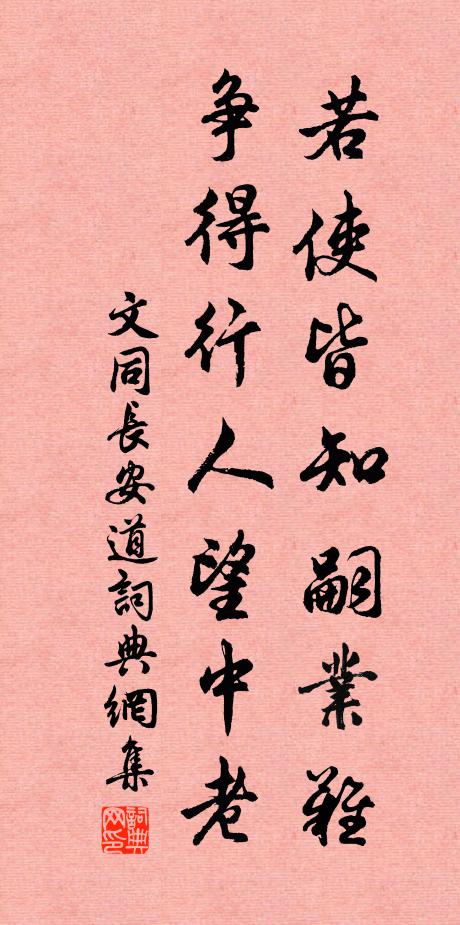 若使皆知嗣業難
爭得行人望中老
文同長安道詞典網集
詞典网印